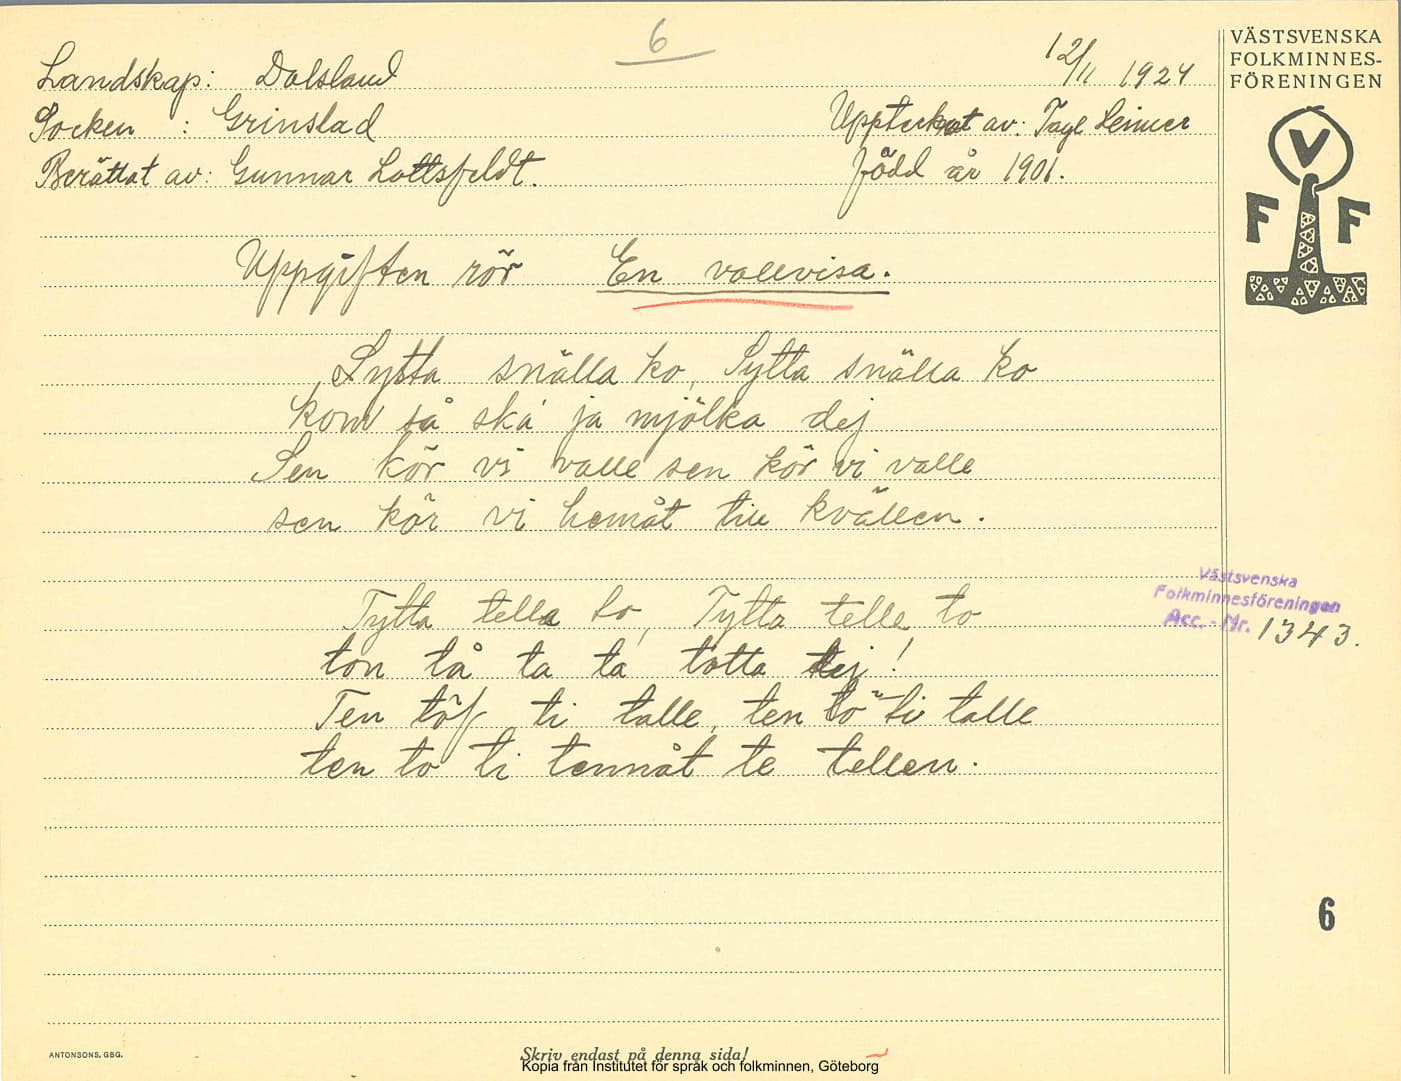 6
12/11 1924
Landskap: Dalsland
Socken : Grinstad
Upptecknat av: Tage Heimer
Berättat av: Gunnar Lottsfeldt.
född år 1901.
VÄSTSVENSKA
FOLKMINNES-
FÖRENINGEN
V
F F
Uppgiften rör En vallvisa.
Lytta snälla ko, Lytta snälla ko
kom så ska' ja mjölka dej
Sen kör vi valle sen kör vi valle
sen kör vi hemåt till kvällen.
Tytta tella to, Tytta telle to
ton tå ta ta totta tej!
Ten töf ti talle, ten tö ti talle
ten to ti temåt te tellen.
Västsvenska
Folkminnesföreningen
Acc. - Nr. 1343.
6
ANTONSONS, GBG.
Skriv endast på denna sida!
Kopia från Institutet för språk och folkminnen, Göteborg